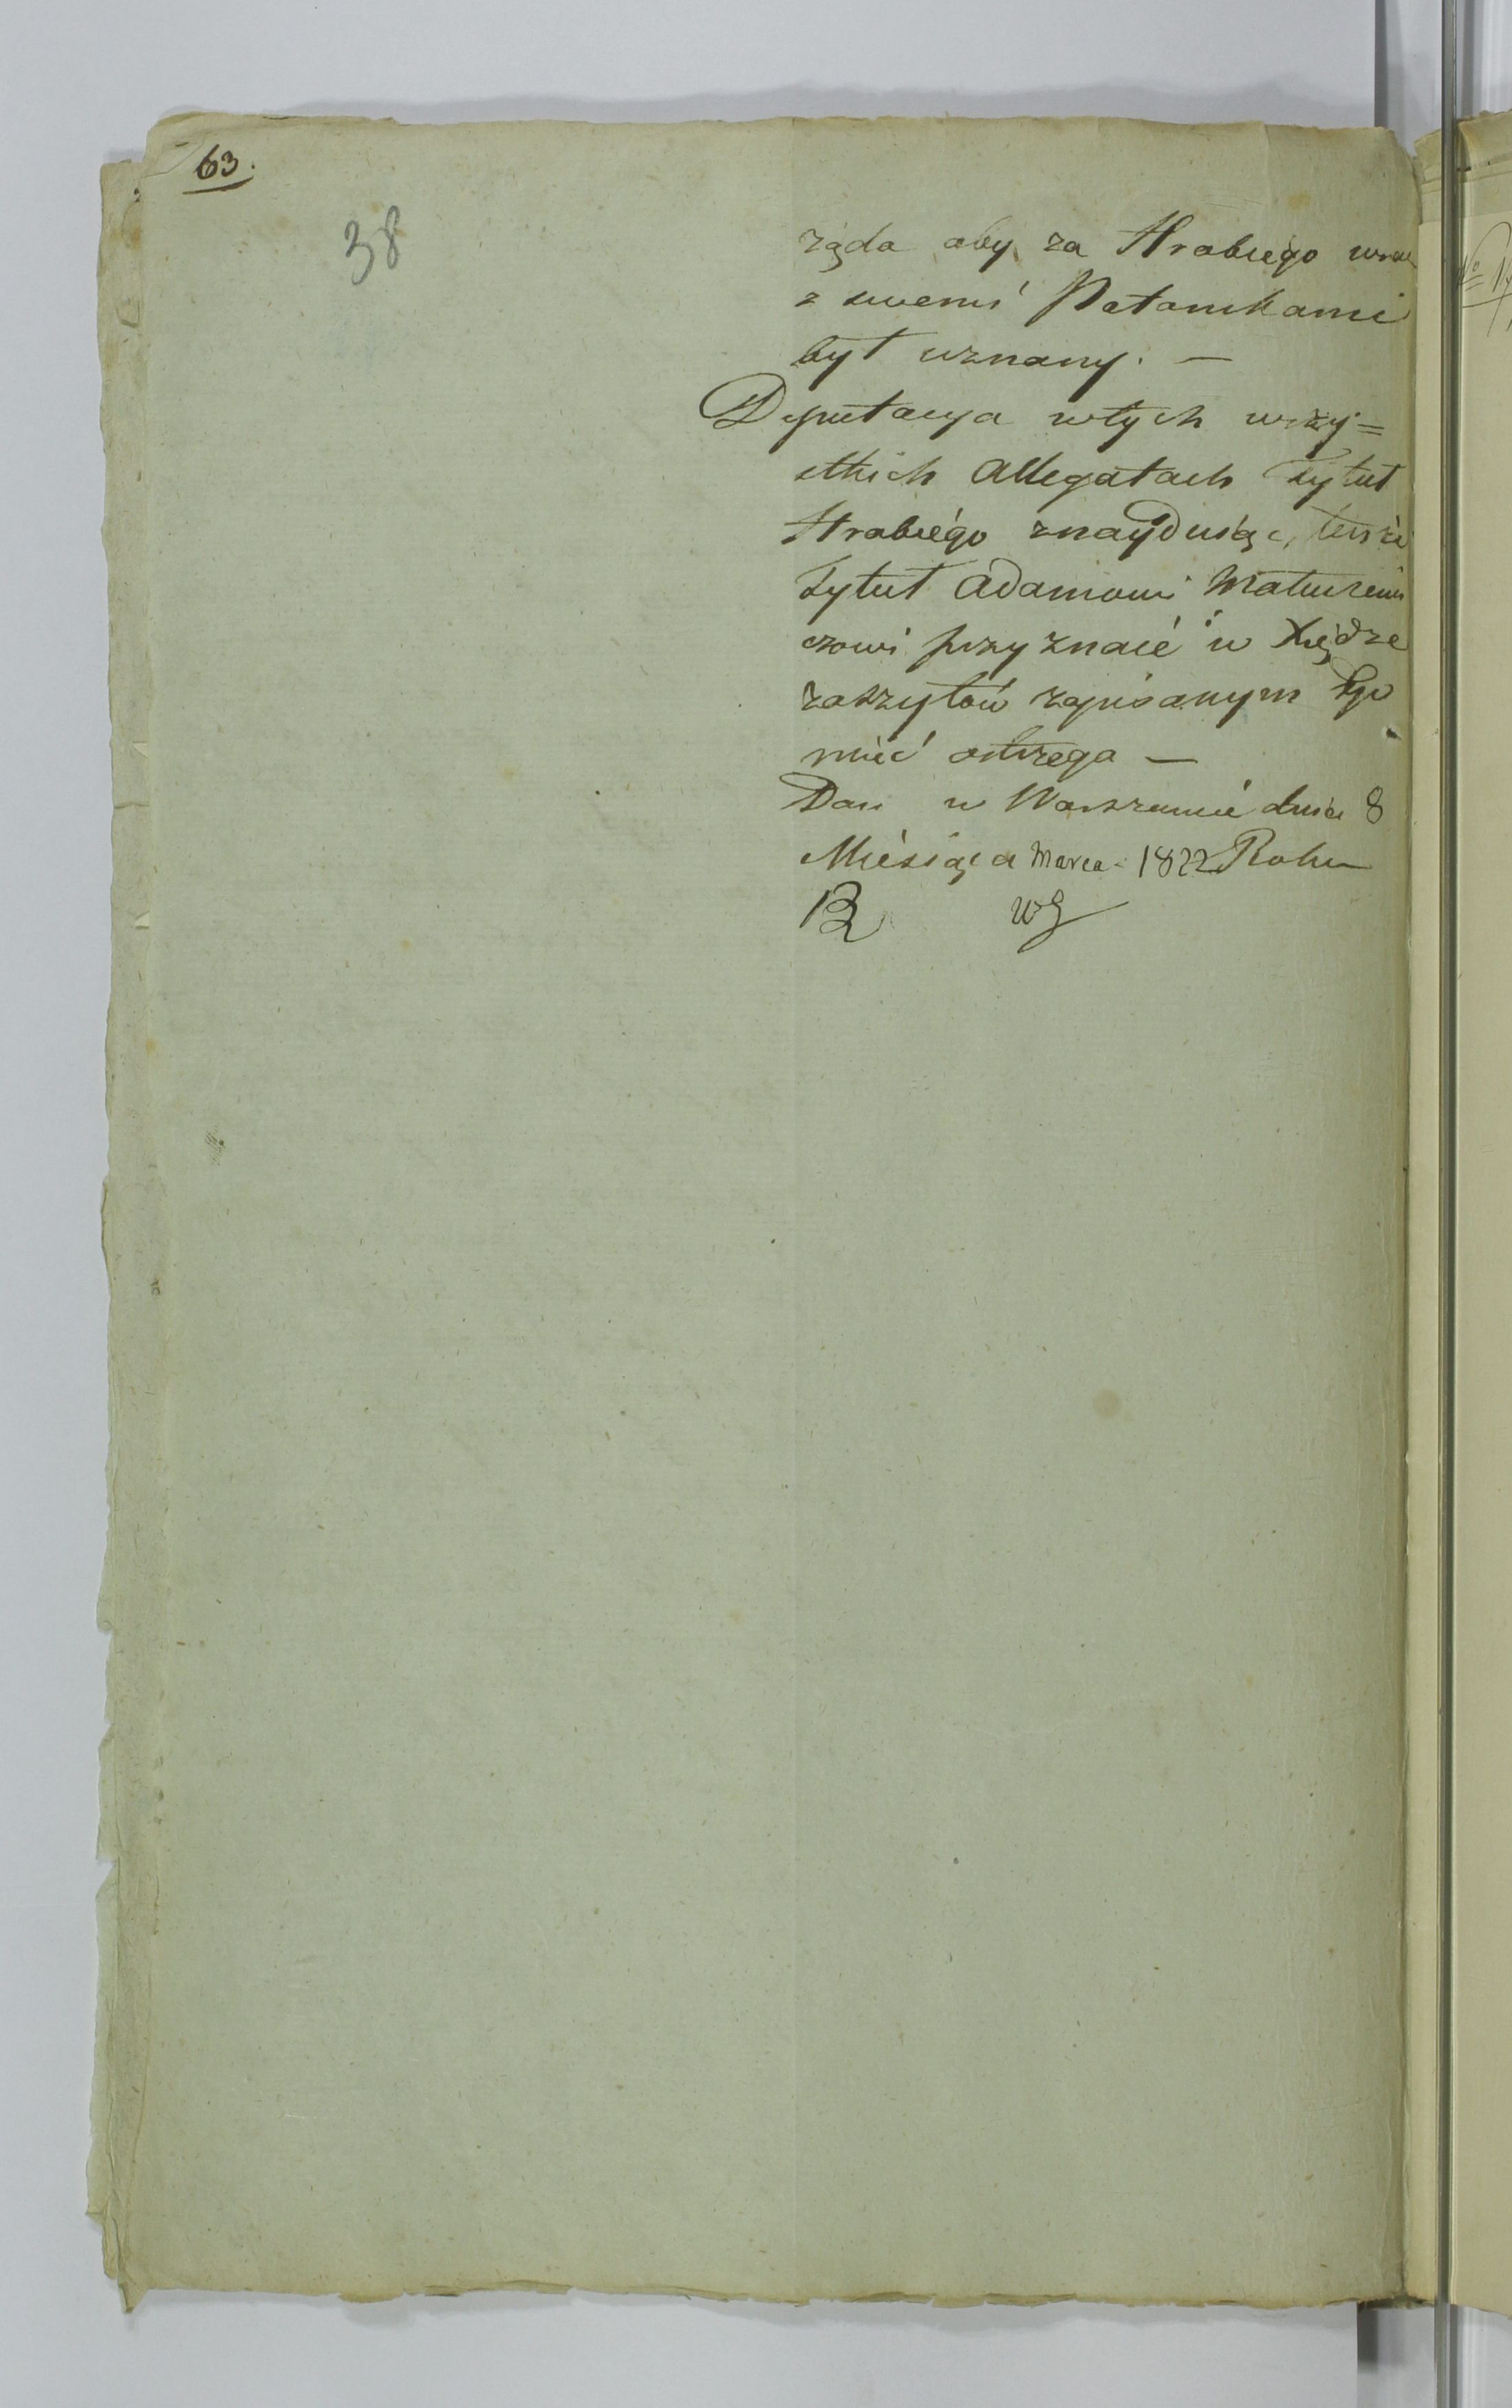 63.
38
żąda aby za Hrabiego wraz
z swemi Potomkami
był uznany. —
Deputacya w tych wszy=
stkich Allegatach Tytuł
Hrabiego znayduiąc, tenże
Tytuł Adamowi Matusewi
czowi przyznaie i w Xiędze
zaszytów zapisanym Go
mieć
—
Dan w Warszawie dnia 8
Miesiąca Marca 1822 Roku